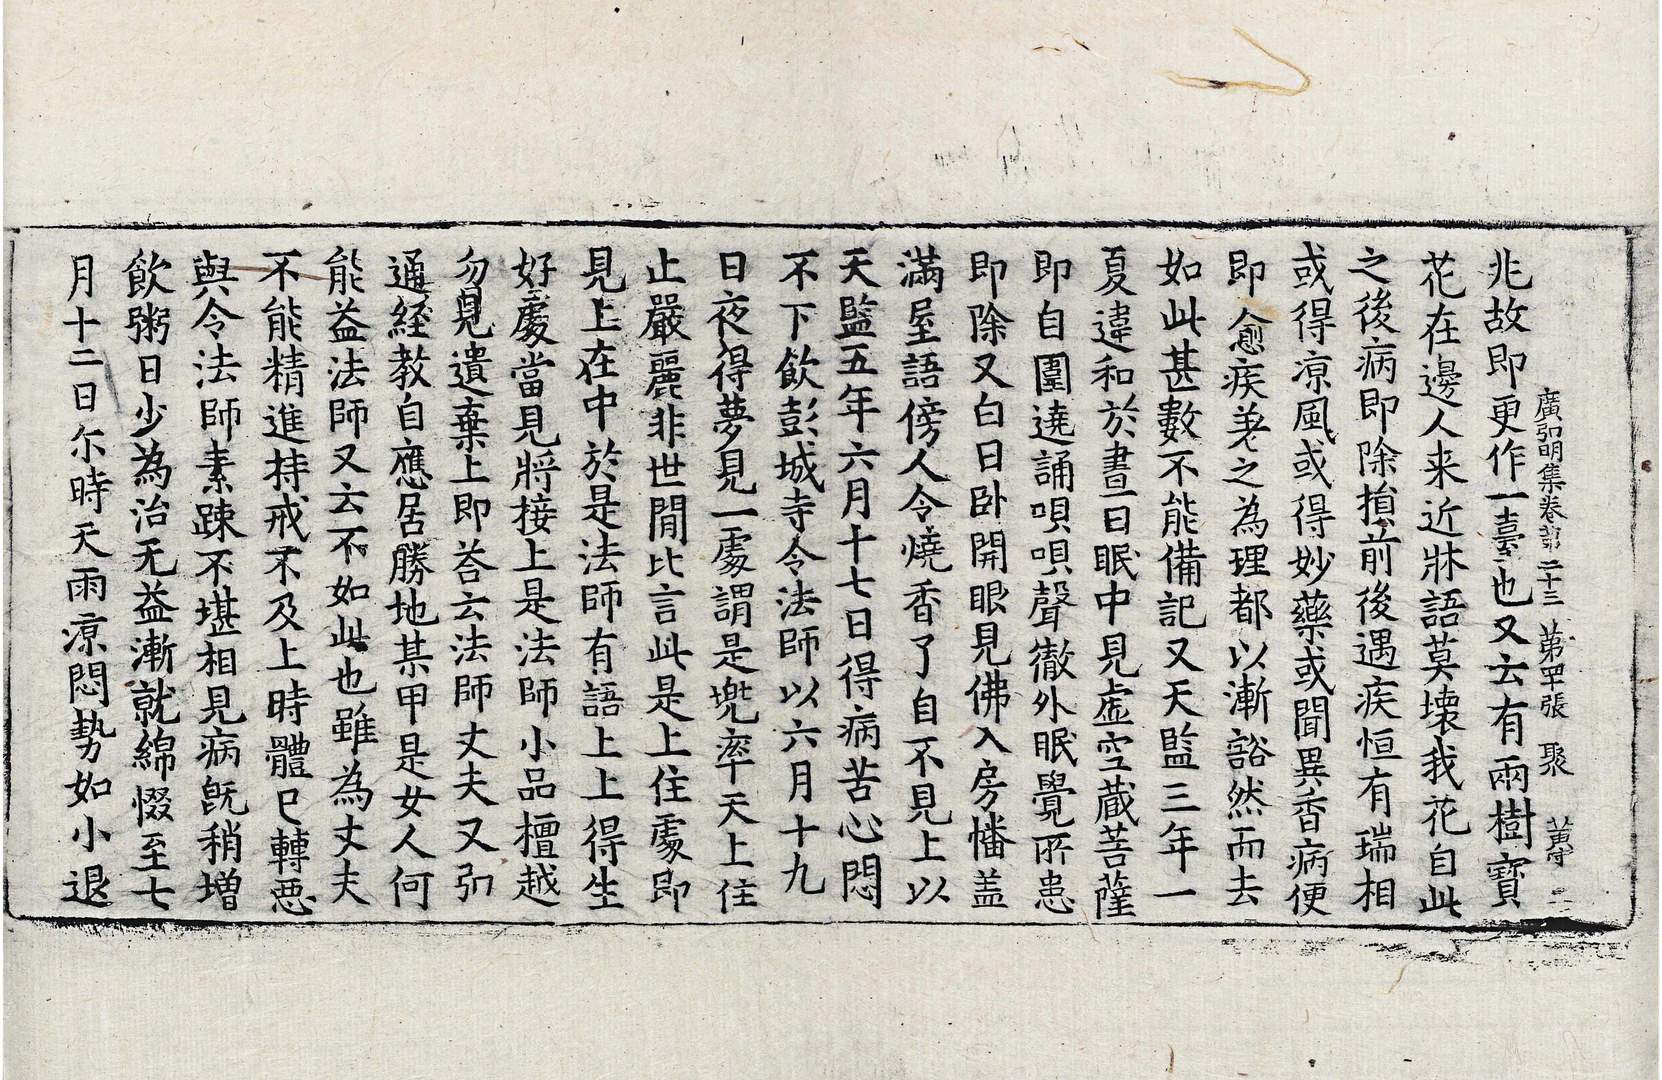 廣弘明集卷第二十三 第罒張 聚 黃守 二
兆故即更作一臺也又云有兩樹寶
花在邊人来近牀語莫壊我花自此
之後病即除損前後遇疾恒有瑞相
或得凉風或得妙藥或聞異香病便
即愈疾差之為理都以漸豁然而去
如此甚數不能備記又天監三年一
夏違和於晝日眠中見虛空藏菩薩
即自圍遶誦唄唄聲徹外眠覺所患
即除又白日卧開眼見佛入房幡盖
滿屋語傍人令燒香了自不見上以
天監五年六月十七日得病苦心悶
不下飲彭城寺令法師以六月十九
日夜得夢見一處謂是兠率天上住
止嚴麗非世間比言此是上住處即
見上在中於是法師有語上上得生
好處當見將接上是法師小品檀越
勿見遺棄上即荅云法師丈夫又弘
通經教自應居勝地某甲是女人何
能益法師又云不如此也雖為丈夫
不能精進持戒不及上時體已轉惡
與令法師素踈不堪相見病既稍增
飲粥日少為治无益漸就綿惙至七
月十二日尒時天雨凉悶勢如小退